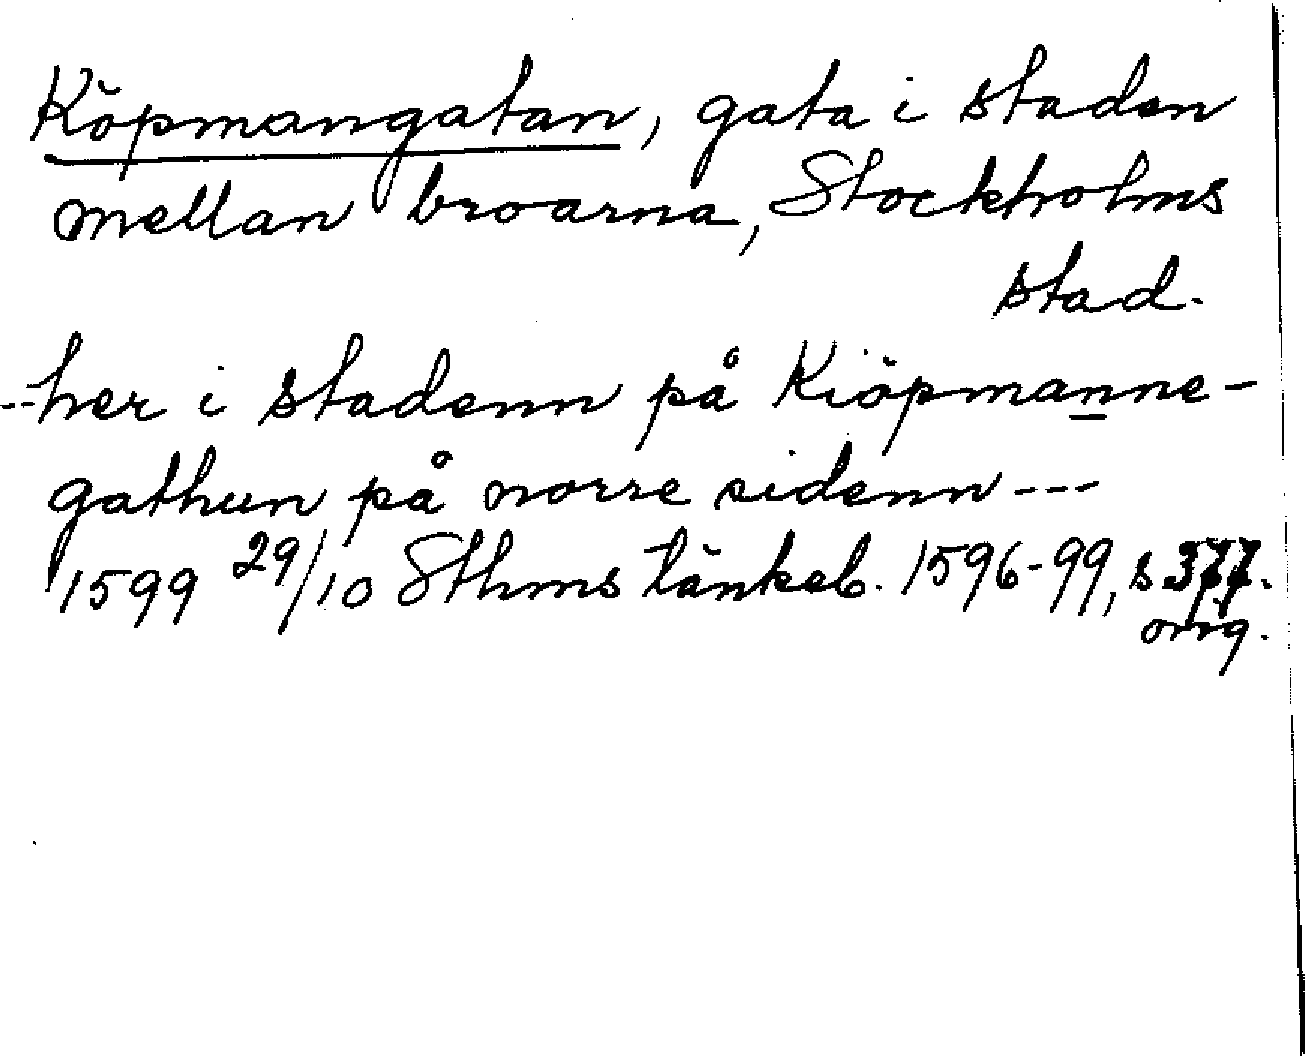 Köpmangatan, gata i staden
mellan broarna, Stockholms
stad.
--her i stadenn på Kiöpmanne-
gathun på norre sidenn---
1599 29/10 Sthms tänkeb. 1596-99, s 377.
orig.